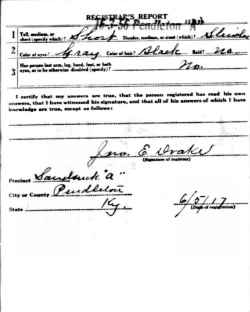 REGISTRAR'S REPORT
16-3-50 Pendleton "A"
1 Tall, medium, or short (specify which)? Short Slender, medium, or stout (which)? Slender
2 Color of eyes? Gray Color of hair? Black Bald? No.
3 Has person lost arm, leg, hand, foot, or both eyes, or is he otherwise disabled (specify)? No.
I certify that my answers are true, that the person registered has read his own answers, that I have witnessed his signature, and that all of his answers of which I have knowledge are true, except as follows:
Jno. E. Drake
(Signature of registrar)
Precinct "A"
City or County Pendleton
State Ky.
6/5/17
(Date of registration)